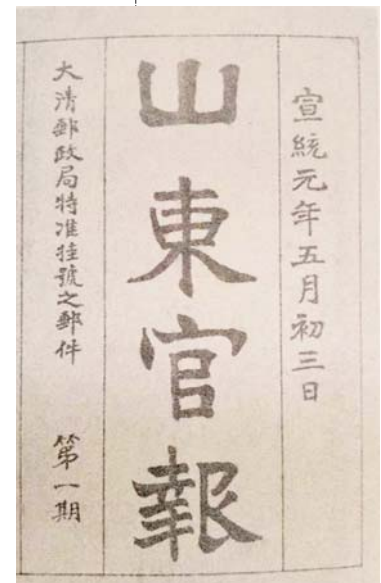 宣統元年五月初三日
山東官報
大清郵政局特准挂號之郵件 第一期